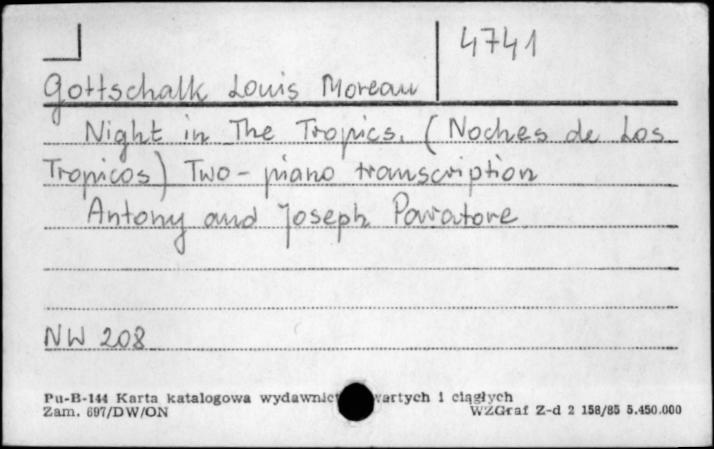 4741
Gottschalk Louis Moreau
Night in The Tropics. (Noches de Los
Tropicos) Two-piano transcription
Antony and Joseph Paratore
NW 208
Pu-B-144 Karta katalogowa wydawnict wartych i ciągłych
Zam. 697/DW/ON WZGraf Z-d 2 158/85 5.450.000